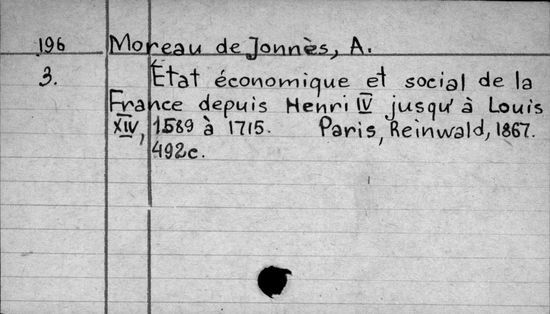 196 Moreau de Jonnès, A.
3. État économique et social de la
France depuis Henri IV jusqu'à Louis
XIV, 1589 à 1715. Paris, Reinwald, 1867.
492c.